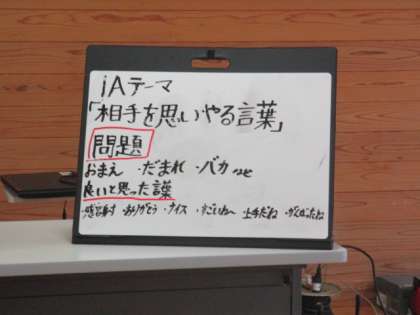 iAテーマ
「相手を思いやる言葉」
問題
おまえ ・だまれ ・バカ など
良いと思った言葉
・感謝 ・ありがとう ・ナイス ・すごいね〜 上手だね ・がんばったね